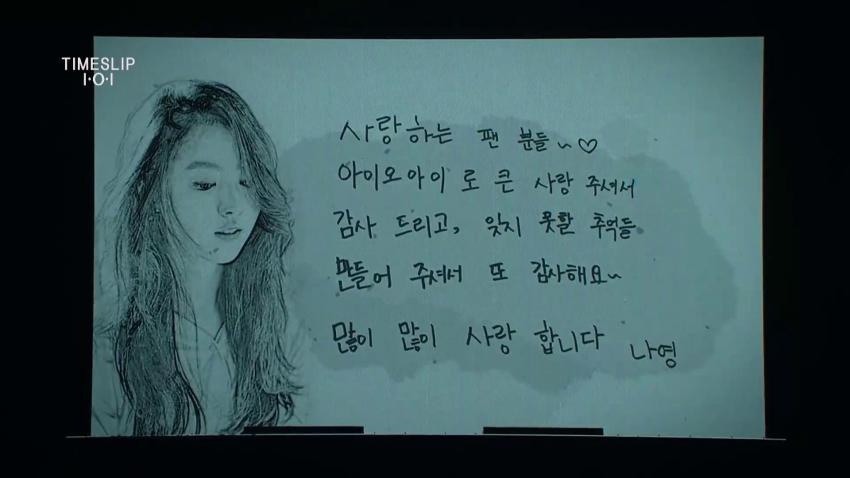 TIMESLIP
I·O·I
사랑하는 팬 분들~♡
아이오아이 로 큰 사랑 주셔서
감사 드리고, 잊지 못할 추억들
만들어 주셔서 또 감사해요~
많이 많이 사랑 합니다
나영